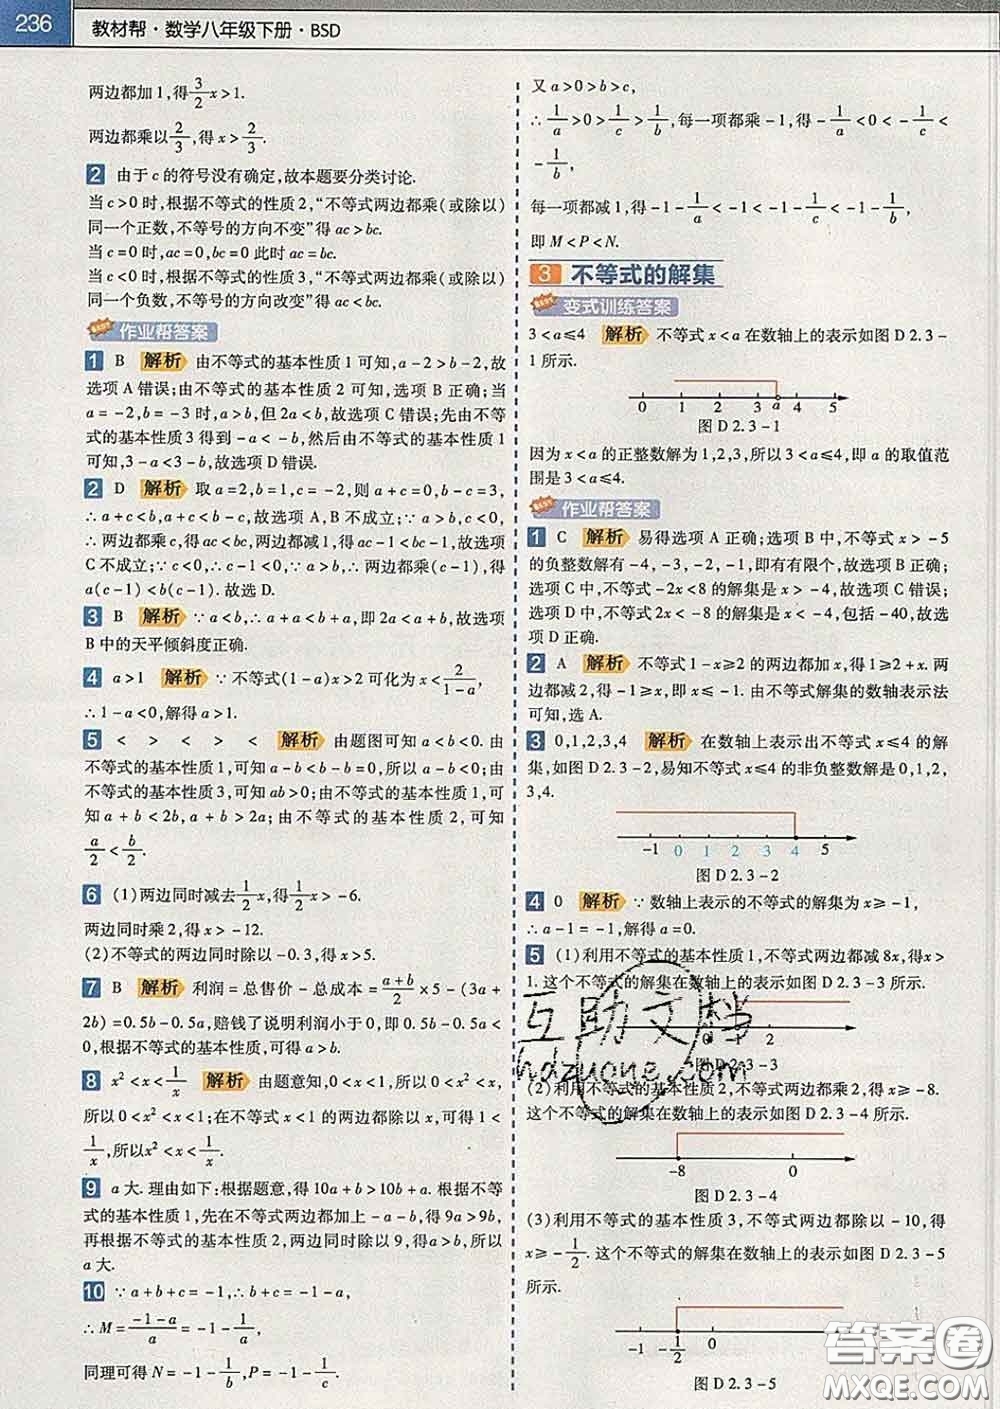 236 教材帮·数学八年级下册·BSD
两边都加1,得3/2x>1.
两边都乘以2/3,得x>2/3.
2 由于c的符号没有确定,故本题要分类讨论.
当c>0时,根据不等式的性质2,“不等式两边都乘(或除以)
同一个正数,不等号的方向不变”得ac>bc.
当c=0时,ac=0,bc=0此时ac=bc.
当c<0时,根据不等式的性质3,“不等式两边都乘(或除以)
同一个负数,不等号的方向改变”得ac<bc.
作业帮答案
1 B 解析 由不等式的基本性质1可知,a-2>b-2,故
选项A错误;由不等式的基本性质2可知,选项B正确;当
a=-2,b=-3时,a>b,但2a<b,故选项C错误;先由不等
式的基本性质3得到-a<-b,然后由不等式的基本性质1
可知,3-a<3-b,故选项D错误.
2 D 解析 取a=2,b=1,c=-2,则a+c=0,b-c=3,
∴a+c<b,a+c<b-c,故选项A,B不成立;∵b>c,c<0,
∴两边都乘c,得ac<bc,两边都减1,得ac-1<bc-1,故选项
C不成立;∵c<0,∴c-1<0,∵a>b,∴两边都乘c-1,得
a(c-1)<b(c-1).故选D.
3 B 解析 ∵a<b,∴a+a<b+a,即2a<a+b,故选项
B中的天平倾斜度正确.
4 a>1 解析 ∵不等式(1-a)x>2可化为x<2/(1-a),
∴1-a<0,解得a>1.
5 < > < > < 解析 由题图可知a<b<0.由
不等式的基本性质1,可知a-b<b-b=0,所以a-b<0;由
不等式的基本性质3,可知ab>0;由不等式的基本性质1,可
知a+b<2b,a+b>2a;由不等式的基本性质2,可知
a/2<b/2.
6 (1)两边同时减去1/2x,得1/2x>-6.
两边同时乘2,得x>-12.
(2)不等式的两边同时除以-0.3,得x>5.
7 B 解析 利润=总售价-总成本=(a+b)/2×5-(3a+
2b)=0.5b-0.5a,赔钱了说明利润小于0,即0.5b-0.5a<
0,根据不等式的基本性质,可得a>b.
8 x²<x<1/x 解析 由题意知,0<x<1,所以0<x²<x,
所以0<x²<x<1;在不等式x<1的两边都除以x,可得1<
1/x,所以x²<x<1/x.
9 a大.理由如下:根据题意,得10a+b>10b+a.根据不等
式的基本性质1,先在不等式两边都加上-a-b,得9a>9b,
再根据不等式的基本性质2,两边同时除以9,得a>b,所以
a大.
10 ∵a+b+c=-1,∴b+c=-1-a,
∴M=(-1-a)/a=-1-1/a,
同理可得N=-1-1/b,P=-1-1/c.
又a>0>b>c,
∴1/a>0>1/c>1/b,每一项都乘-1,得-1/a<0<-1/c<
-1/b,
每一项都减1,得-1-1/a<-1<-1-1/c<-1-1/b,
即M<P<N.
3 不等式的解集
变式训练答案
3<a≤4 解析 不等式x<a在数轴上的表示如图D2.3-
1所示.
0 1 2 3 a 4 5
图D2.3-1
因为x<a的正整数解为1,2,3,所以3<a≤4,即a的取值范
围是3<a≤4.
作业帮答案
1 C 解析 易得选项A正确;选项B中,不等式x>-5
的负整数解有-4,-3,-2,-1,即有有限个,故选项B正确;
选项C中,不等式-2x<8的解集是x>-4,故选项C错误;
选项D中,不等式2x<-8的解集是x<-4,包括-40,故选
项D正确.
2 A 解析 不等式1-x≥2的两边都加x,得1≥2+x.两
边都减2,得-1≥x,即x≤-1.由不等式解集的数轴表示法
可知,选A.
3 0,1,2,3,4 解析 在数轴上表示出不等式x≤4的解
集,如图D2.3-2,易知不等式x≤4的非负整数解是0,1,2,
3,4.
-1 0 1 2 3 4 5
图D2.3-2
4 0 解析 ∵数轴上表示的不等式的解集为x≥-1,
∴a-1=-1,解得a=0.
5 (1)利用不等式的基本性质1,不等式两边都减8x,得x>
1.这个不等式的解集在数轴上的表示如图D2.3-3所示.
0 1 2
图D2.3-3
(2)利用不等式的基本性质2,不等式两边都乘2,得x≥-8.
这个不等式的解集在数轴上的表示如图D2.3-4所示.
-8 0
图D2.3-4
(3)利用不等式的基本性质3,不等式两边都除以-10,得
x≥-1/2.这个不等式的解集在数轴上的表示如图D2.3-5
所示.
-1 -1/2 0
图D2.3-5
互助文档
hdzuone.com
答案圈
MXQE.COM